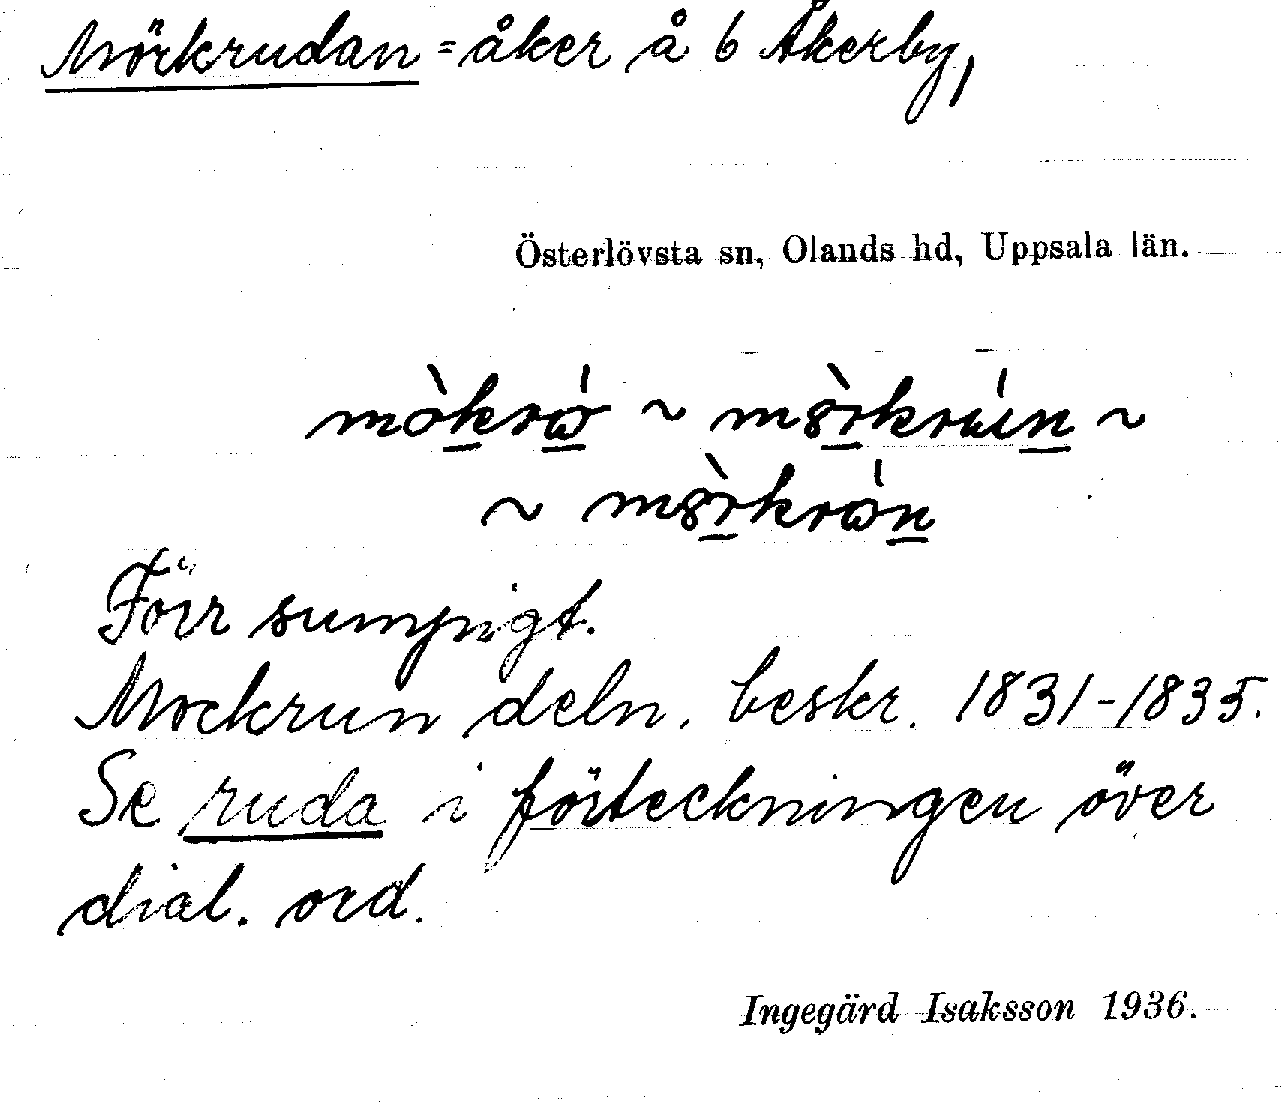 Mörkrudan = åker å 6 Åkerby,
Österlövsta sn, Olands hd, Uppsala län.
mòkrώ ~ mörkrun ~
~ mörkrωn
Förr sumpigt.
Mockrun deln. beskr. 1831-1835.
Se ruda i förteckningen över
dial. ord.
Ingegärd Isaksson 1936.